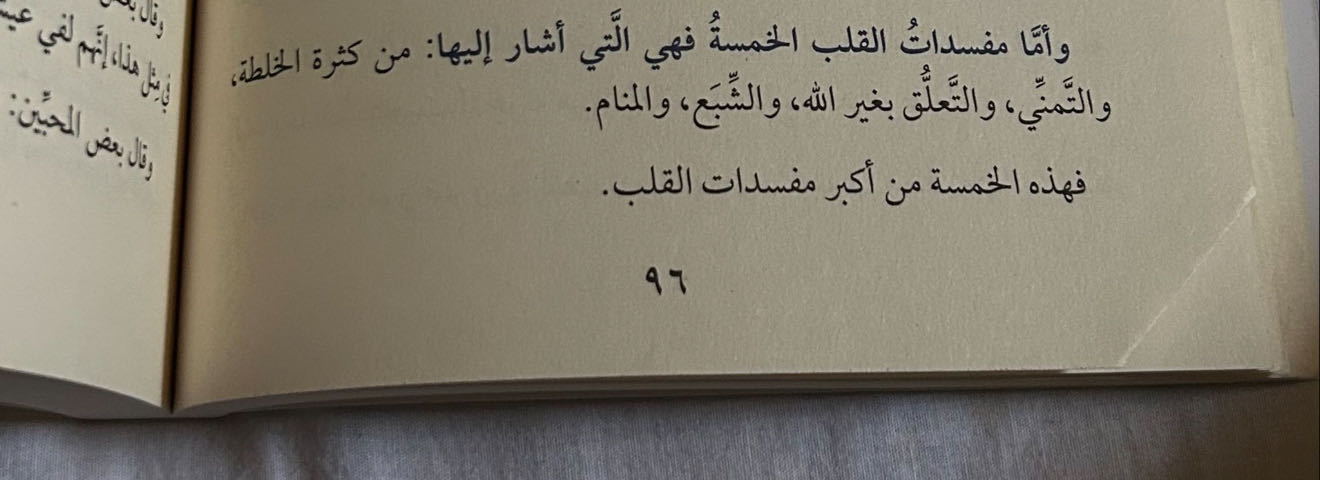 وأمَّا مفسداتُ القلب الخمسةُ فهي الَّتي أشار إليها: من كثرة الخلطة،
والتَّمنِّي، والتَّعلُّق بغير الله، والشِّبَع، والمنام.
فهذه الخمسة من أكبر مفسدات القلب.
٩٦
وقال بعض
في مِثل هذا، إنَّهم لفي
وقال بعض المحبِّين: